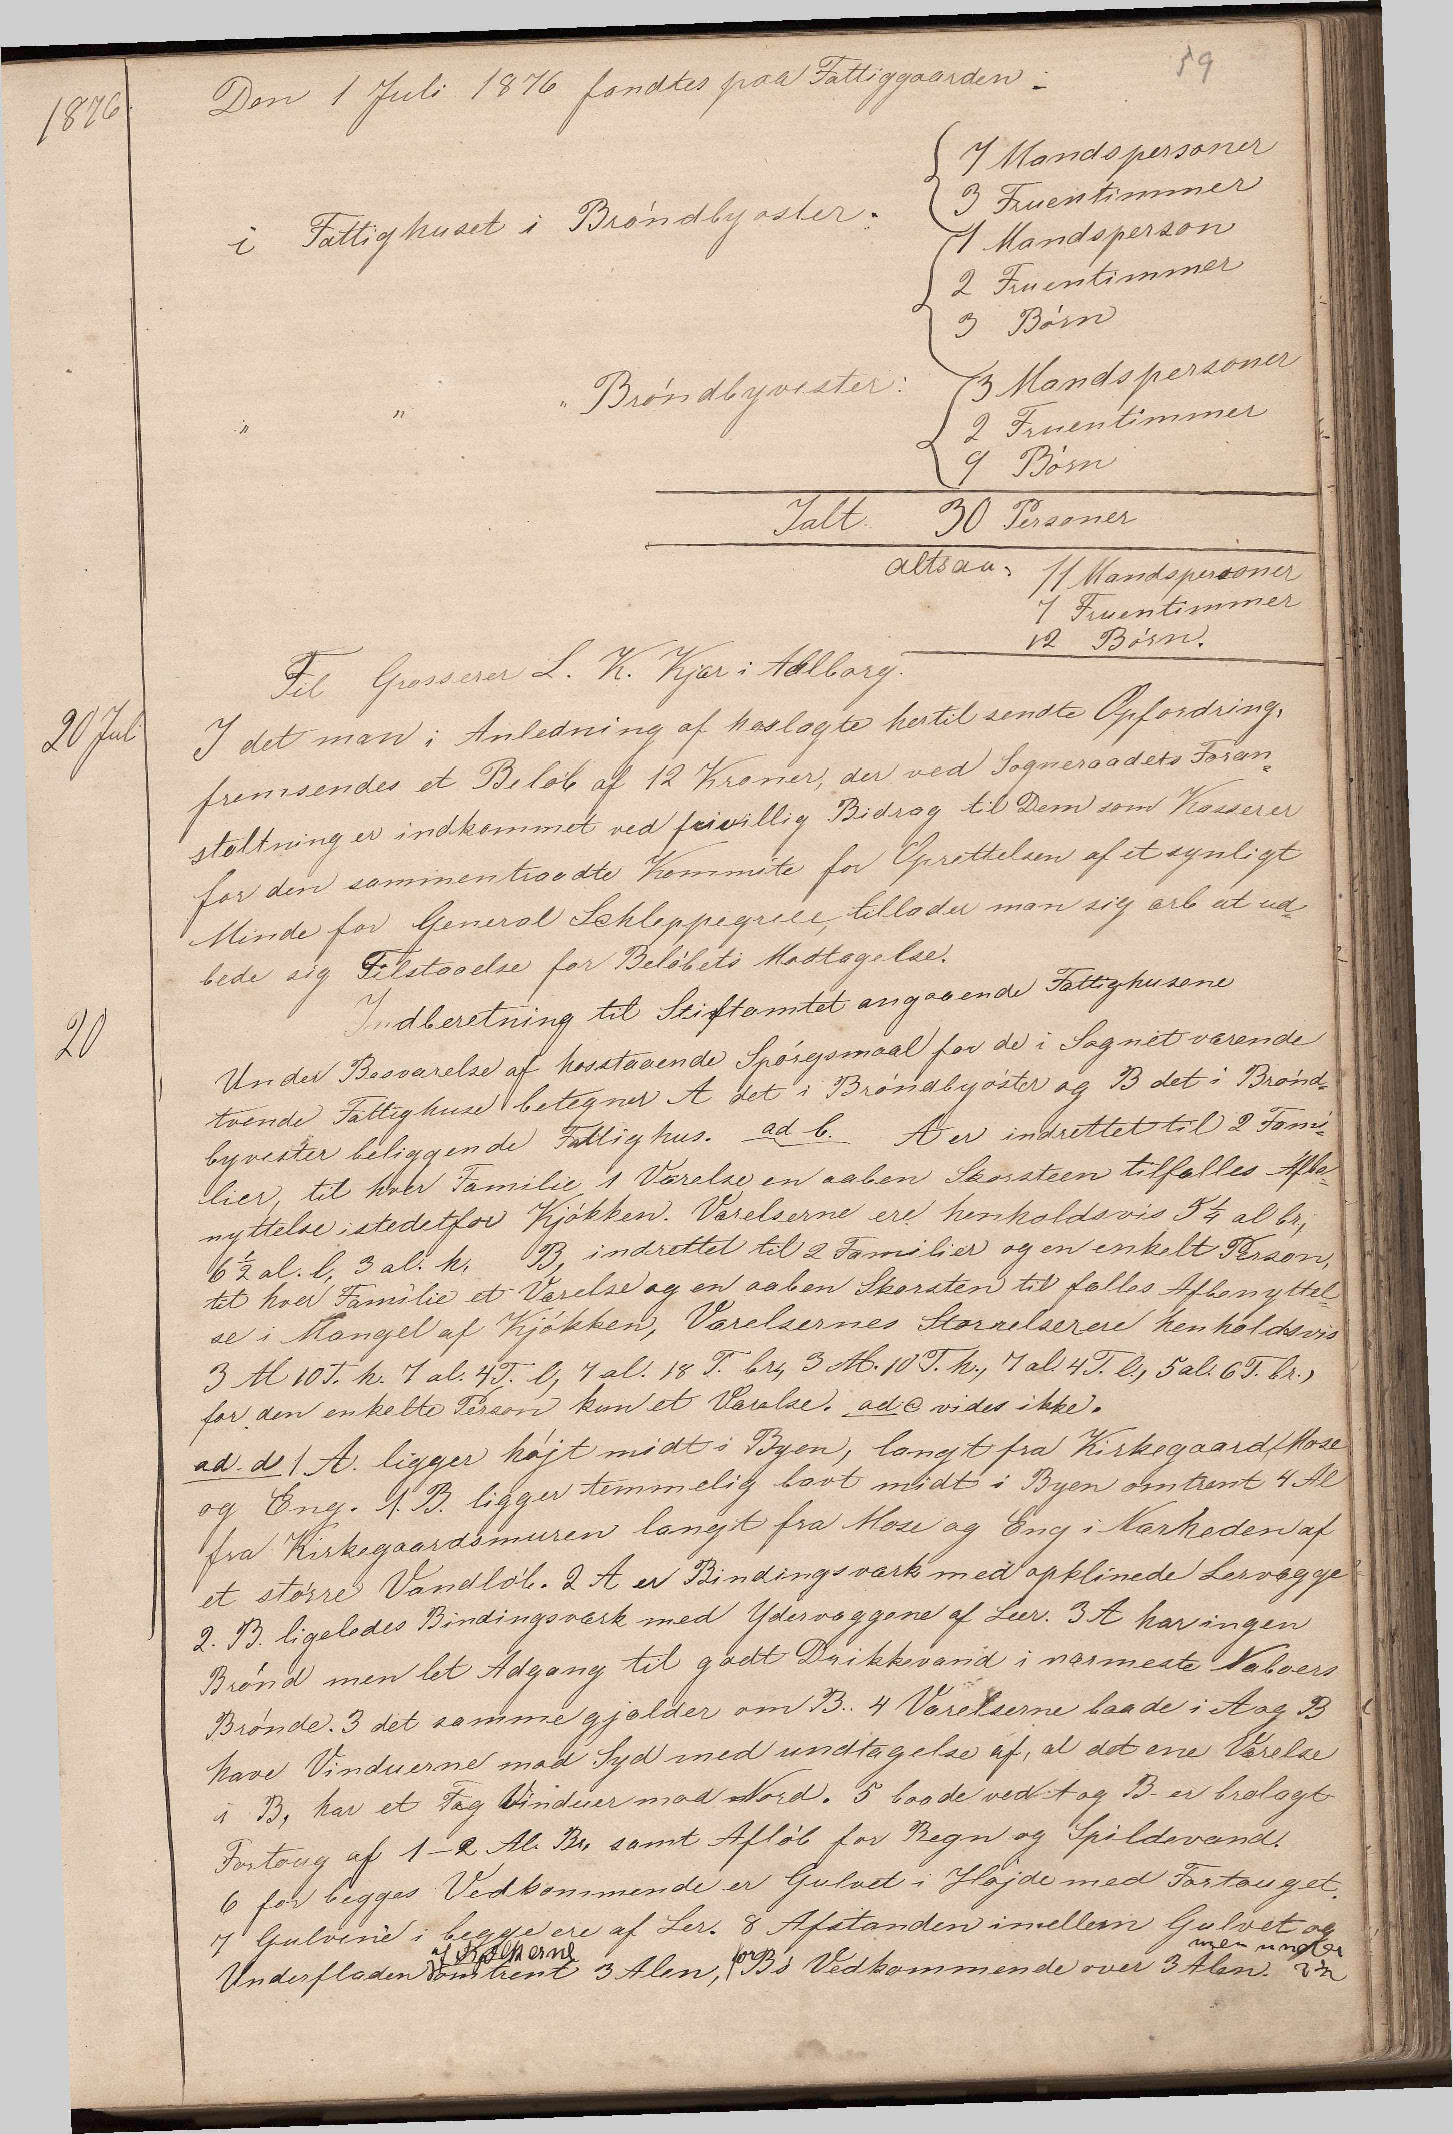 59
1876
Den 1 Juli 1876 fandtes paa Fattiggaarden :
7 Mandspersoner
3 Fruentimmer
i Fattighuset i Brøndbyøster.
1 Mandsperson
2 Fruentimmer
3 Børn
" " " Brøndbyvester:
3 Mandspersoner
2 Fruentimmer
9 Børn
Ialt 30 Personer
altsaa: 11 Mandspersoner
7 Fruentimmer
12 Børn.
Til Grosserer L. K. Kjær i Aalborg.
20 Juli
I det man i Anledning af hoslagte hertil sendte Opfordring,
fremsendes et Beløb af 12 Kroner, der ved Sogneraadets Foran-
staltning er indkommet ved frivillig Bidrag til Dem som Kasserer
for den sammentraadte Kommite for Oprettelsen af et synligt
Minde for General Schleppegrell, tillader man sig ærb at ud-
bede sig Tilstaaelse for Beløbets Modtagelse.
20
Indberetning til Stiftamtet angaaende Fattighusene
Under Besvarelse af hosstaaende Spørgsmaal for de i Sognet værende
tvende Fattighuse betegner A det i Brøndbyøster og B det i Brønd-
byvester beliggende Fattighus. ad b. A er indrettet til 2 Fami-
lier, til hver Familie 1 Værelse en aaben Skorsteen til fælles Afbe-
nyttelse istedetfor Kjøkken. Værelserne ere henholdsvis 5 1/4 al br,
6 1/2 al. l, 3 al. h. B, indrettet til 2 Familier og en enkelt Person,
til hver Familie et Værelse og en aaben Skorsten til fælles Afbenyttel-
se i Mangel af Kjøkken, Værelsernes Størrelser ere henholdsvis
3 Al 10 T. h. 7 al. 4 T. l, 7 al. 18 T. br, 3 Al. 10 T. h., 7 al 4 T. l., 5 al. 6 T. br.,
for den enkelte Person kun et Værelse. ad c vides ikke.
ad d 1 A. ligger højt midt i Byen, langt fra Kirkegaard, Mose
og Eng. 1. B. ligger temmelig lavt midt i Byen omtrent 4 Al
fra Kirkegaardsmuren langt fra Mose og Eng i Nærheden af
et større Vandløb. 2 A er Bindingsværk med opklinede Lervægge
2. B. ligeledes Bindingsværk med Ydervæggene af Leer. 3 A har ingen
Brønd men let Adgang til godt Drikkevand i nærmeste Naboers
Brønde. 3 det samme gjælder om B.. 4 Værelserne baade i A og B
have Vinduerne mod Syd med undtagelse af, at det ene Værelse
i B, har et Fag Vinduer mod Nord. 5 baade ved A og B er brolagt
Fortoug af 1–2 Al. Br, samt Afløb for Regn og Spildevand.
6 for begges Vedkommende er Gulvet i Højde med Fortouget.
7 Gulvene i begge ere af Ler. 8 Afstanden imellem Gulvet og
af Bjælkerne men under
Underfladen omtrent 3 Alen, for B's Vedkommende over 3 Alen.